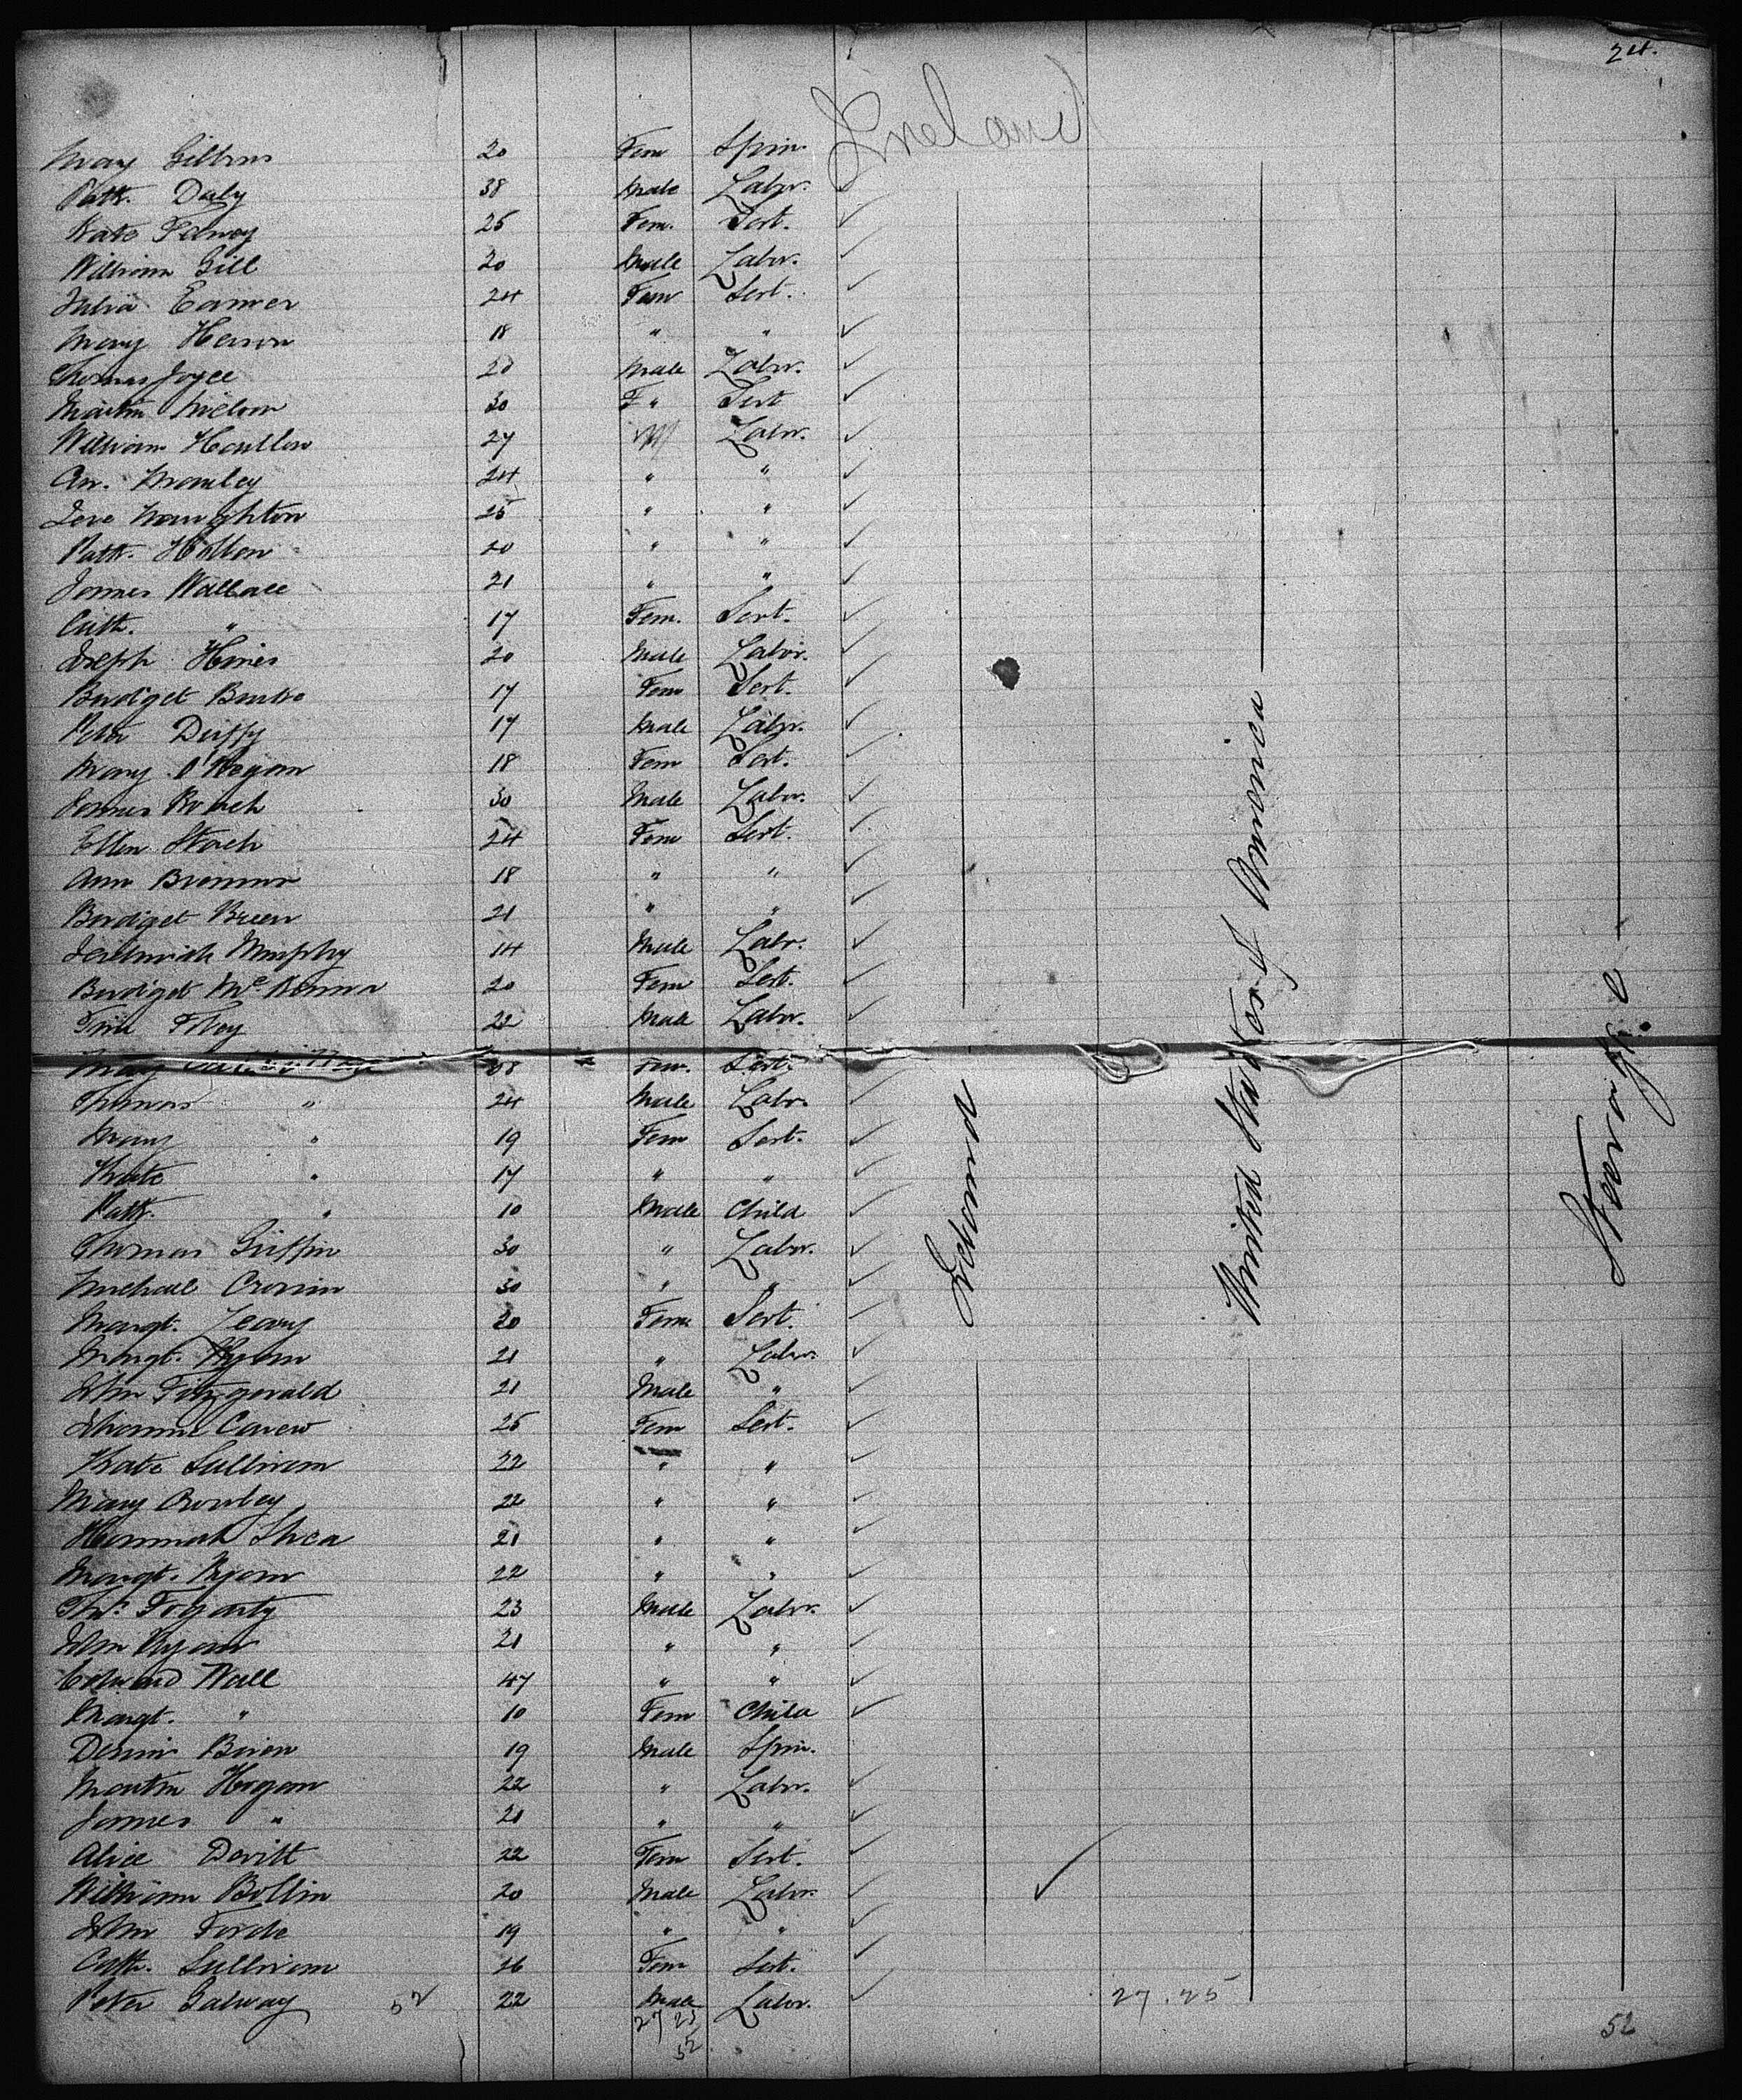 24.
Ireland
Mary Gibbons 20 Fem Spin.
Patk. Daly 38 Male Labr.
Kate Feeney 25 Fem. Sert.
William Gill 20 Male Labr.
Julia Eamer 24 Fem Sert.
Mary Heron 18 " "
Thomas Joyce 20 Male Labr.
Martin 30 F " Sert
William Hanllon 27 M Labr.
An. Manley 24 " "
Naughton 25 " "
Patk. 20 " "
James Wallace 21 " "
Cath. " 17 Fem. Sert.
Joseph Hines 20 Male Labor.
Bridget Burke 17 Fem Sert.
Peter Duffy 17 Male Labr.
Mary O'Regan 18 Fem Sert.
James Roach 30 Male Labr.
Ellen Stack 24 Fem Sert.
Ann 18 " "
Bridget Breen 21 " "
Jeremiah Murphy 14 Male Labr.
Bridget McKenna 20 Fem Sert.
Tim Foley 22 Male Labr.
Mary Fem. Sert.
Thomas " 24 Male Labr.
Mary " 19 Fem Sert.
Kate " 17 " "
Patk. " 10 Male Child
Thomas Griffin 30 " Labr.
Michael Cronin 30 " "
Margt. Leary 20 Fem Sert.
Margt. Ryan 21 " Labr.
John Fitzgerald 21 Male "
Johanna Carew 25 Fem Sert.
Kate Sullivan 22 " "
Mary Crowley 22 " "
Hannah Shea 21 " "
Margt. Ryan 22 " "
Thos. Fogarty 23 Male Labr.
John Ryan 21 " "
Edward Wall 47 " "
Margt. " 10 Fem Child
Denis 19 Male Spin.
Martin Hogan 22 " Labr.
James " 21 " "
Alice Devitt 22 Fem Sert.
William Bollin 20 Male Labr.
John Forde 19 " "
Cath. Sullivan 16 Fem Sert.
Peter Galway 52 22 Male Labr.
27 25
52
Ireland
United States of America
Steerage
27.25
52